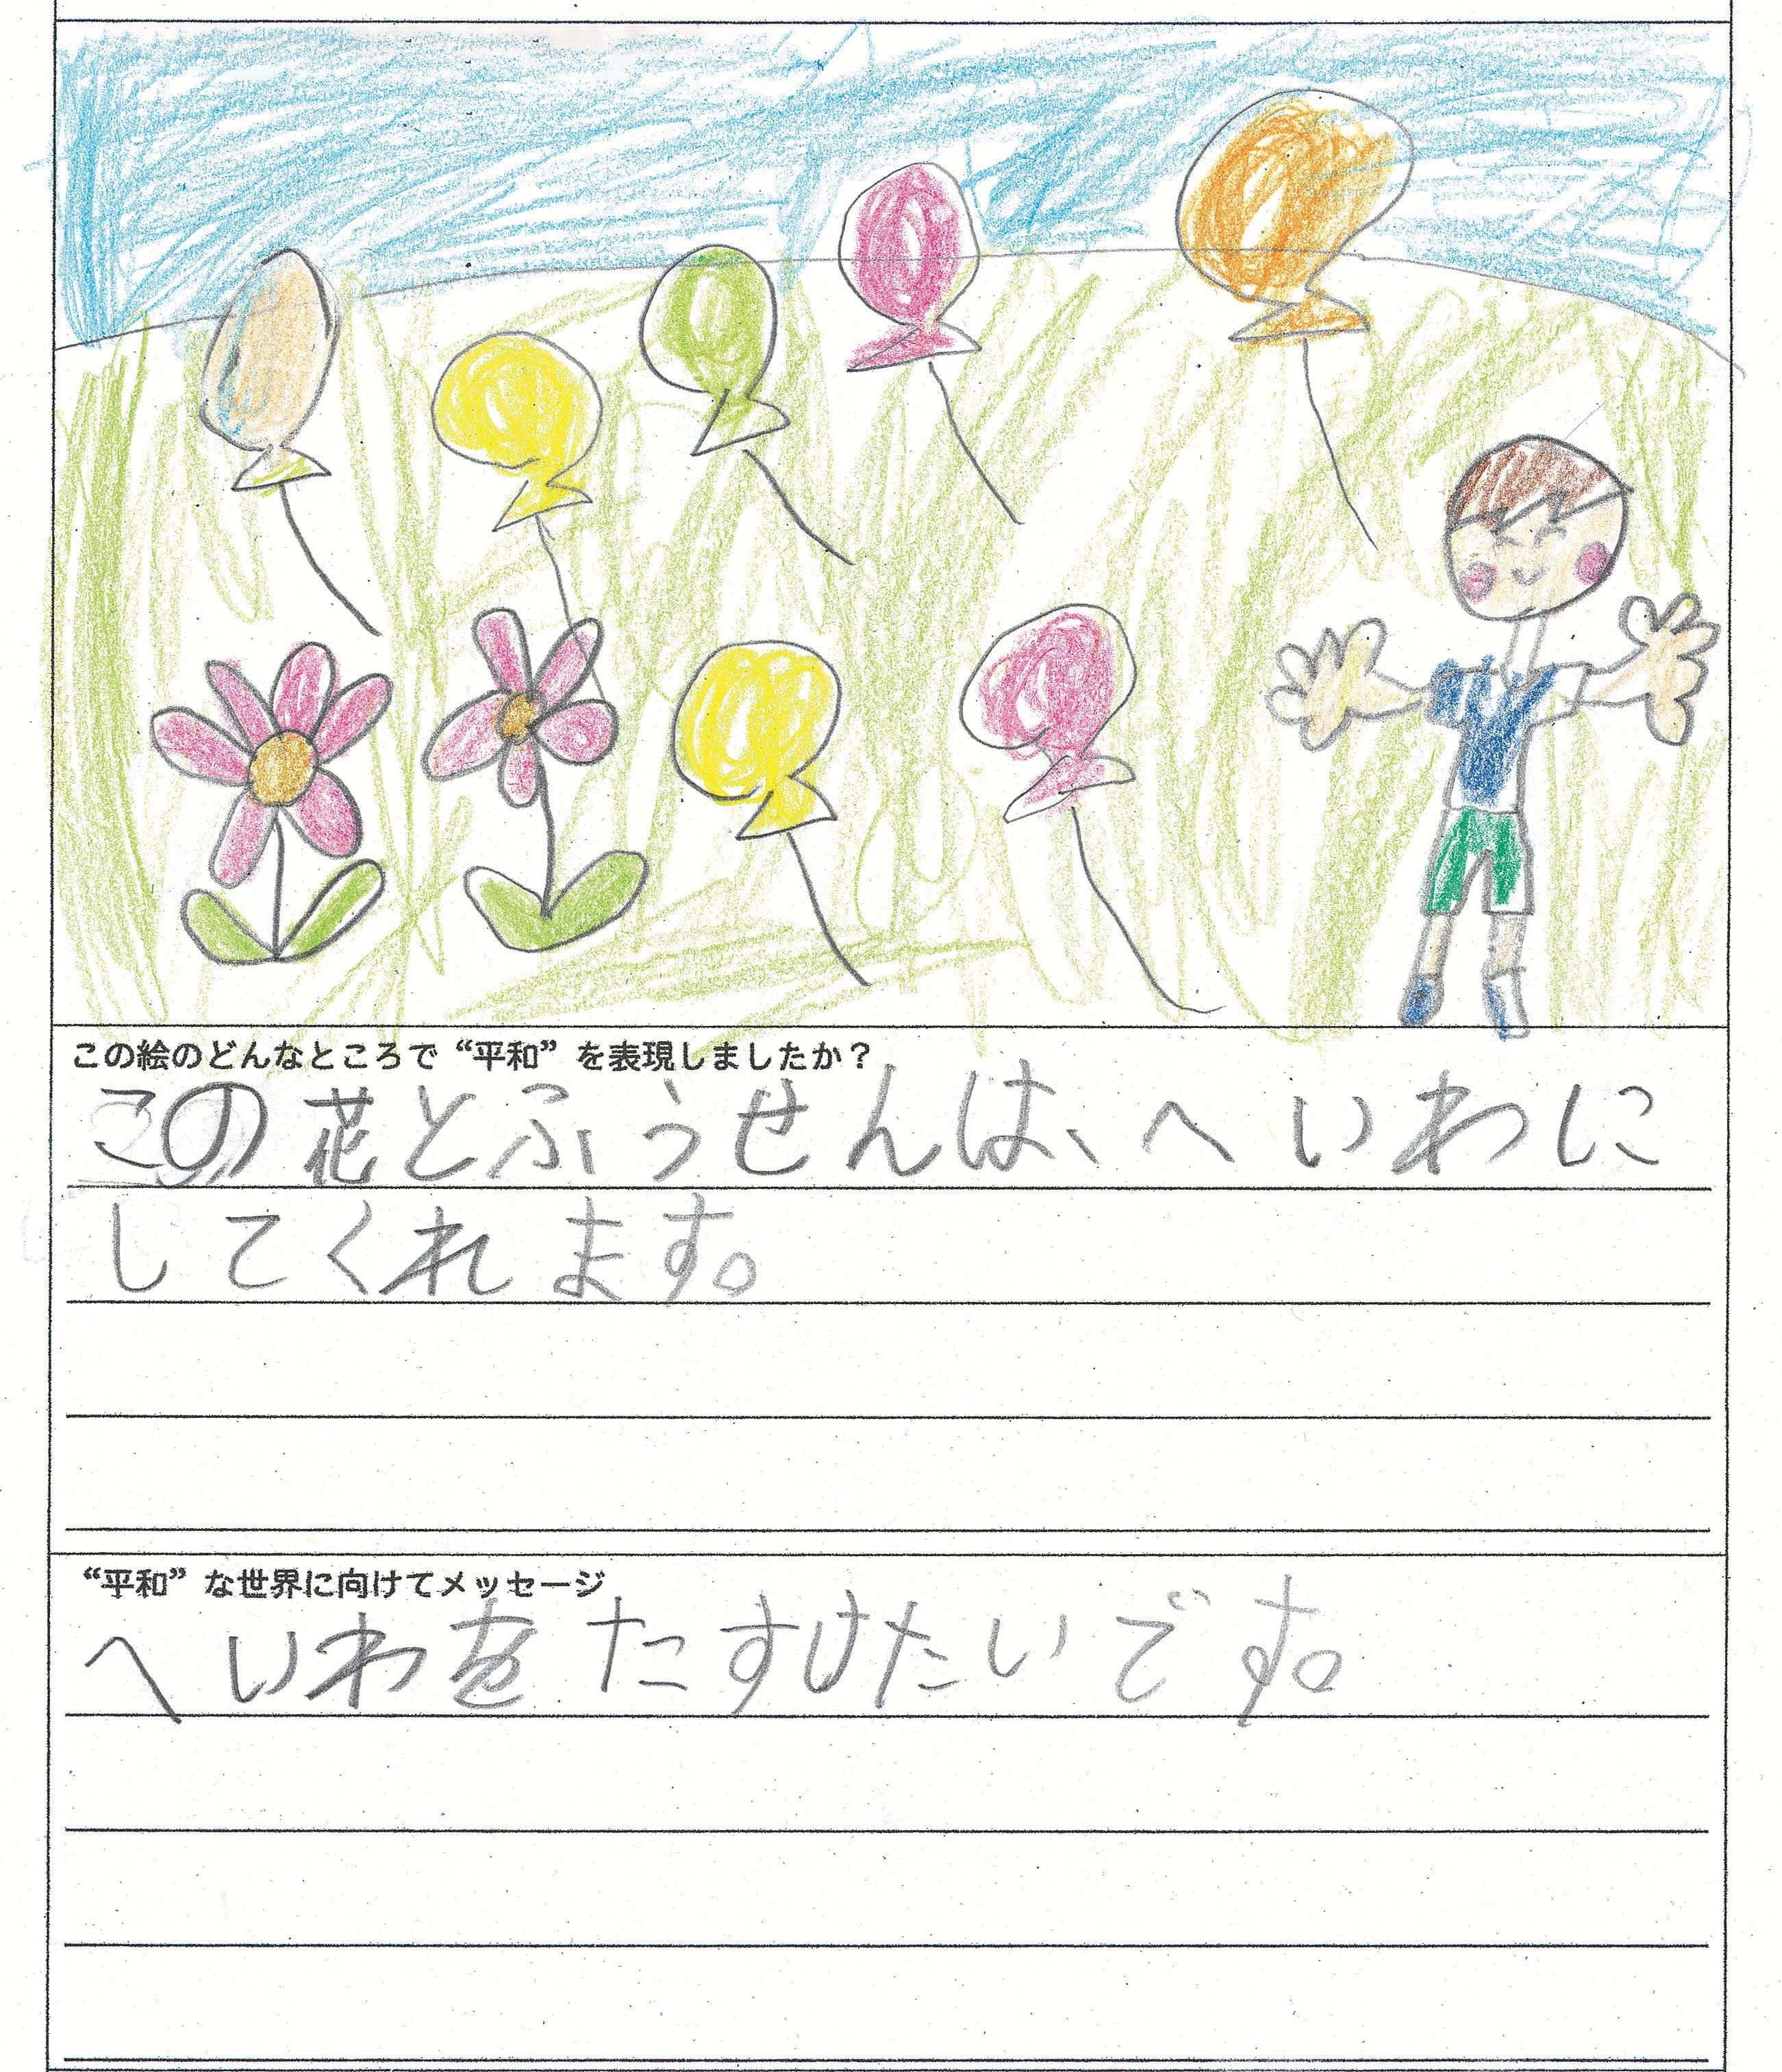 この絵のどんなところで“平和”を表現しましたか？
この花とふうせんは、へいわに
してくれます。
“平和”な世界に向けてメッセージ
へいわをたすけたいです。